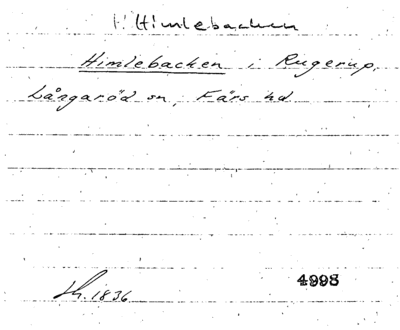 Himlebacken
Himlebacken i Rugerup,
Långaröd sn, Färs hd
1836
4998